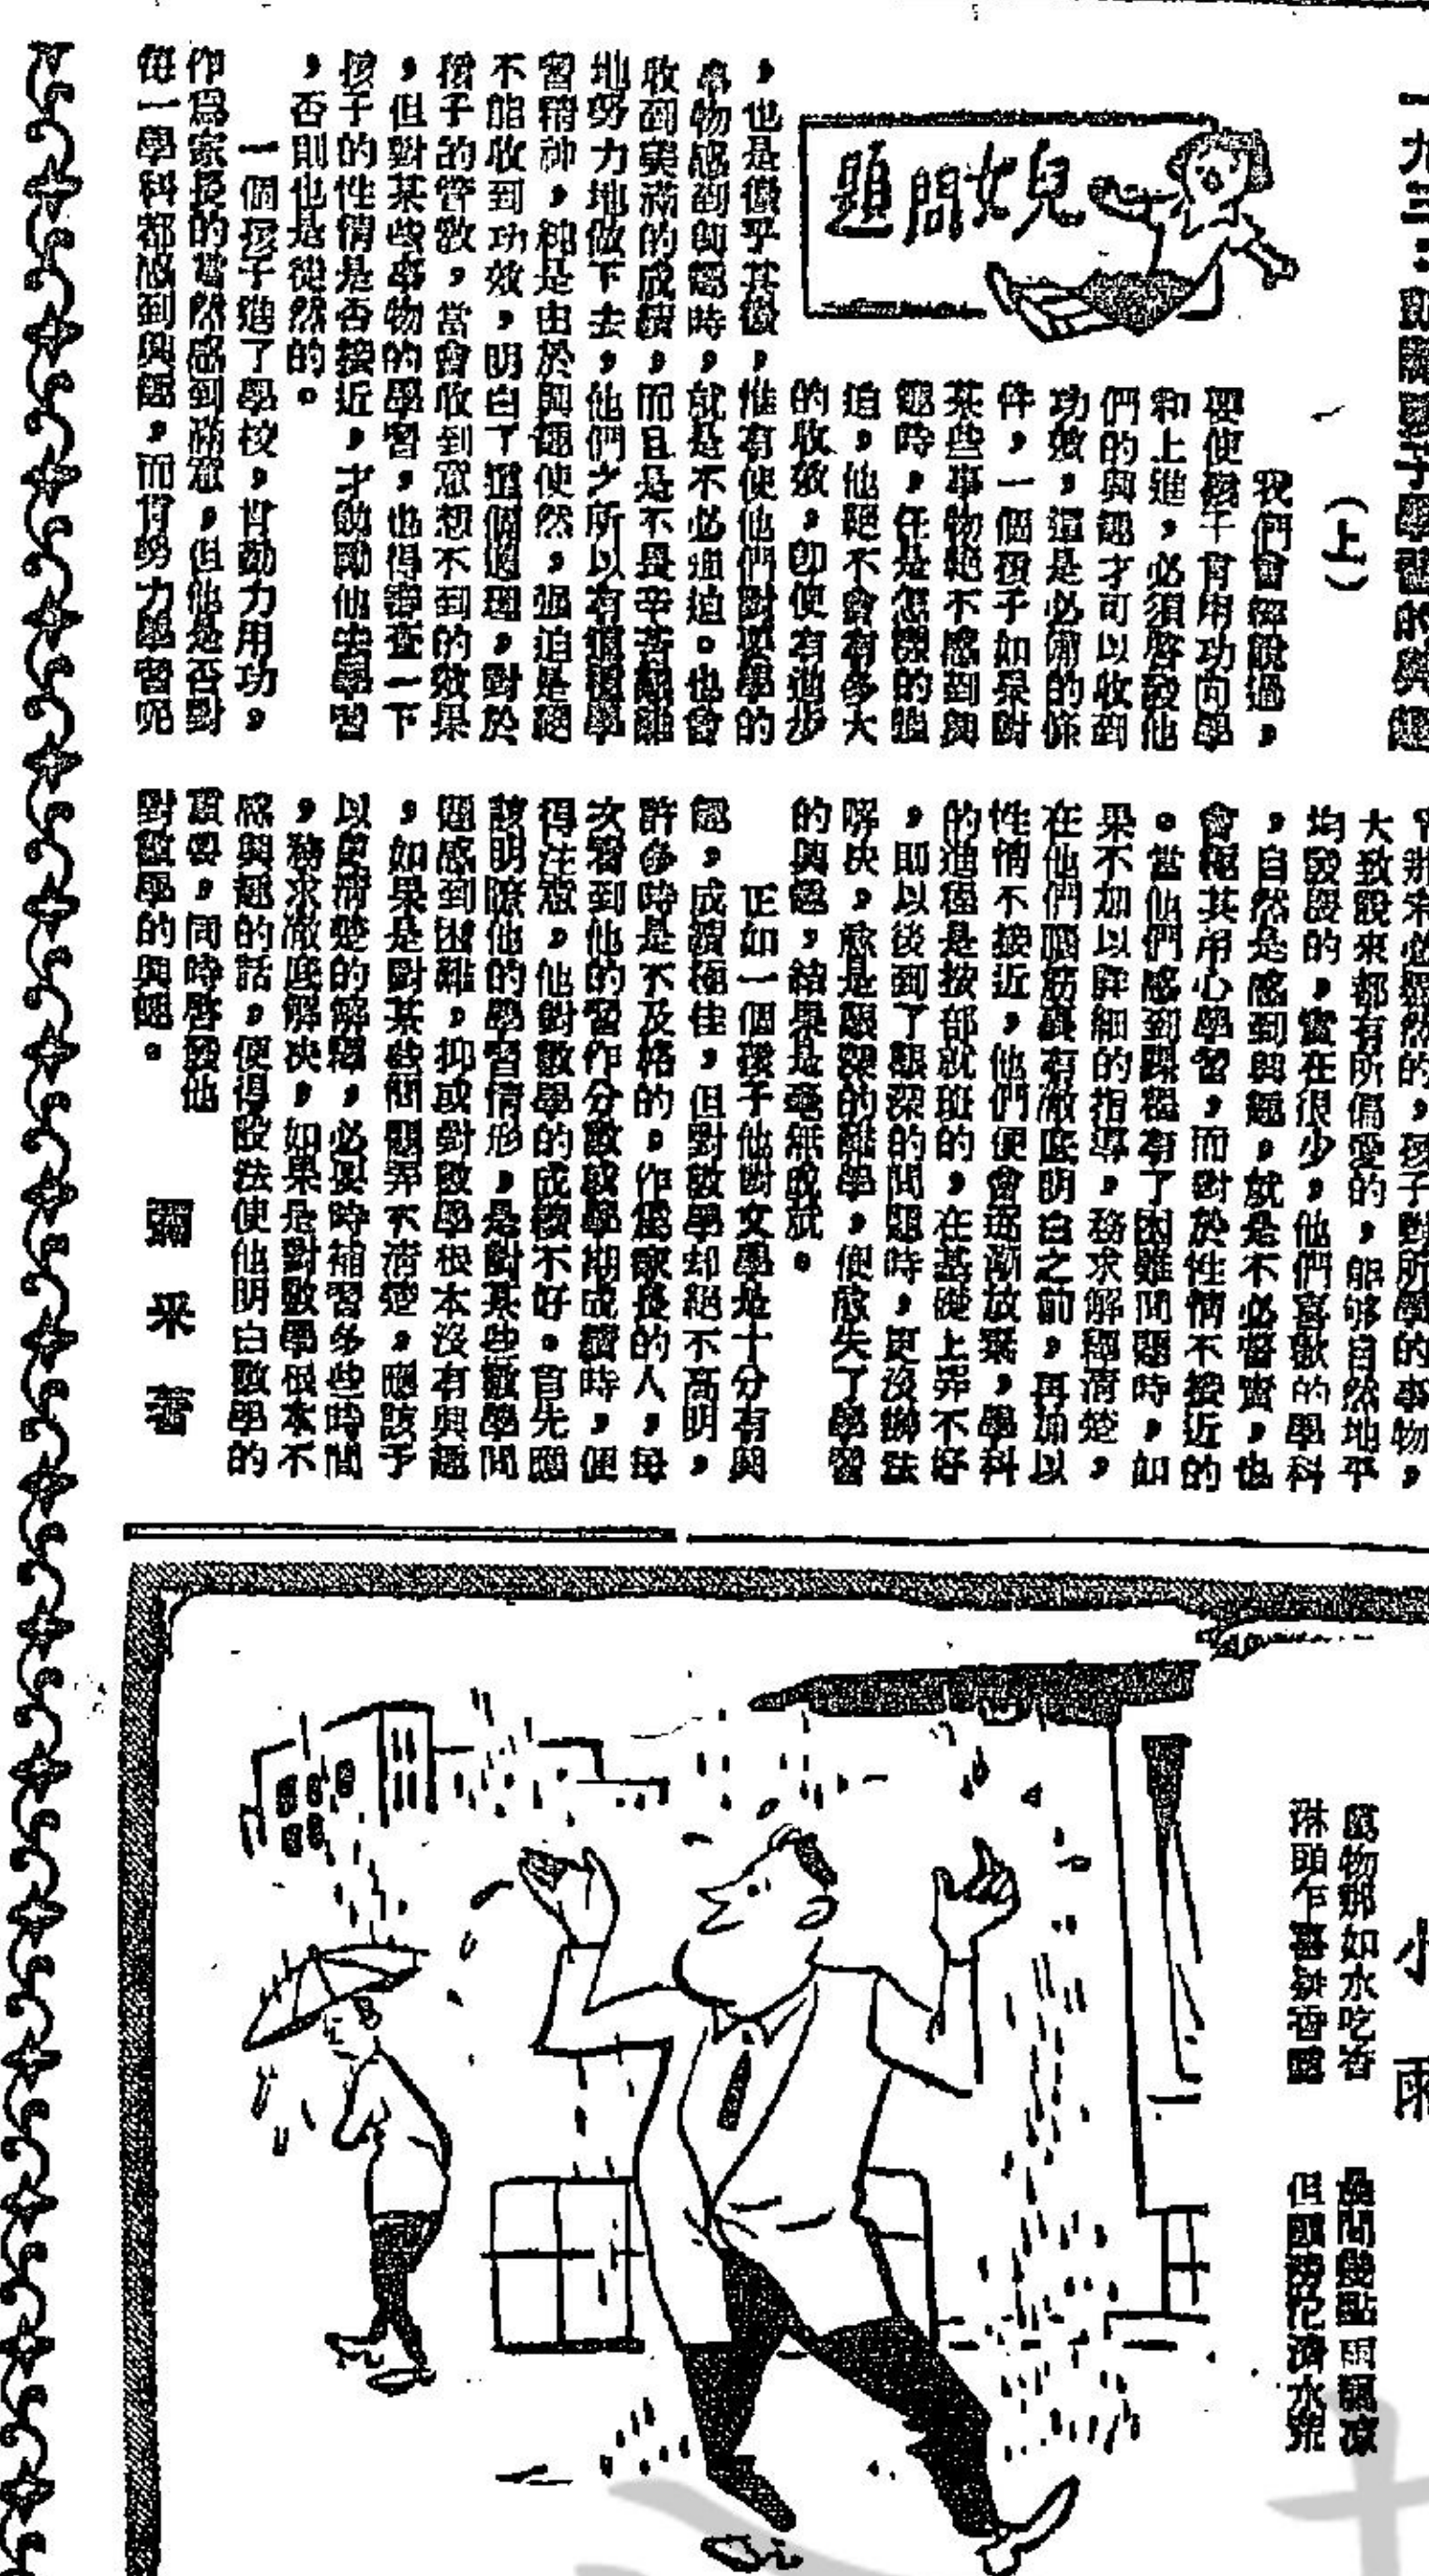 兒女問題
一九三：
孩子學習的興趣
（上）
我們曾經說過，
要使孩子肯用功向學
和上進，必須啓發他
們的興趣才可以收到
功效，這是必備的條
件，一個孩子如果對
某些事物絕不感到興
趣時，任是怎樣的強
迫，他絕不會有多大
的收效，即使有進步
，也是微乎其微，惟有使他們對要學的
事物感到興趣時，就是不必強迫。也會
收到美滿的成績，而且是不畏辛苦艱難
地努力地做下去，他們之所以有這種學
習精神，純是由於興趣使然，強迫是絕
不能收到功效，明白了這個道理，對於
孩子的管教，當會收到意想不到的效果
，但對某些事物的學習，也得審查一下
孩子的性情是否接近，才鼓勵他去學習
，否則也是徒然的。
一個孩子進了學校，肯勤力用功，
作爲家長的當然感到滿意，但他是否對
每一學科都感到興趣，而肯努力學習呢
必然的，孩子對所學的事物，
大致說來都有所偏愛的，能够自然地平
均發展的，實在很少，他們喜歡的學科
，自然是感到興趣，就是不必督責，也
會極其用心學習，而對於性情不接近的
。當他們感到課程有了困難問題時，如
果不加以詳細的指導，務求解釋清楚，
在他們腦筋裏有澈底明白之前，再加以
性情不接近，他們便會逐漸放棄，學科
的進程是按部就班的，在基礎上弄不好
，即以後到了艱深的問題時，更沒辦法
解决，愈是艱深的難學，便愈失了學習
的興趣，結果是毫無成就。
正如一個孩子他對文學是十分有興
趣，成績極佳，但對數學却絕不高明，
許多時是不及格的，作爲家長的人，每
次看到他的習作分數或學期成績時，便
得注意，他對數學的成績不好。首先應
該明瞭他的學習情形，是對某些數學問
題感到困難，抑或對數學根本沒有興趣
，如果是對某些問題弄不清楚，應該予
以更清楚的解釋，必要時補習多些時間
，務求澈底解决，如果是對數學根本不
感興趣的話，便得設法使他明白數學的
重要，同時啓發他
對數學的興趣。
彌采著
小雨
萬物那如水吃香
淋頭乍喜
幾點雨飄凉
但願滂沱濟水荒